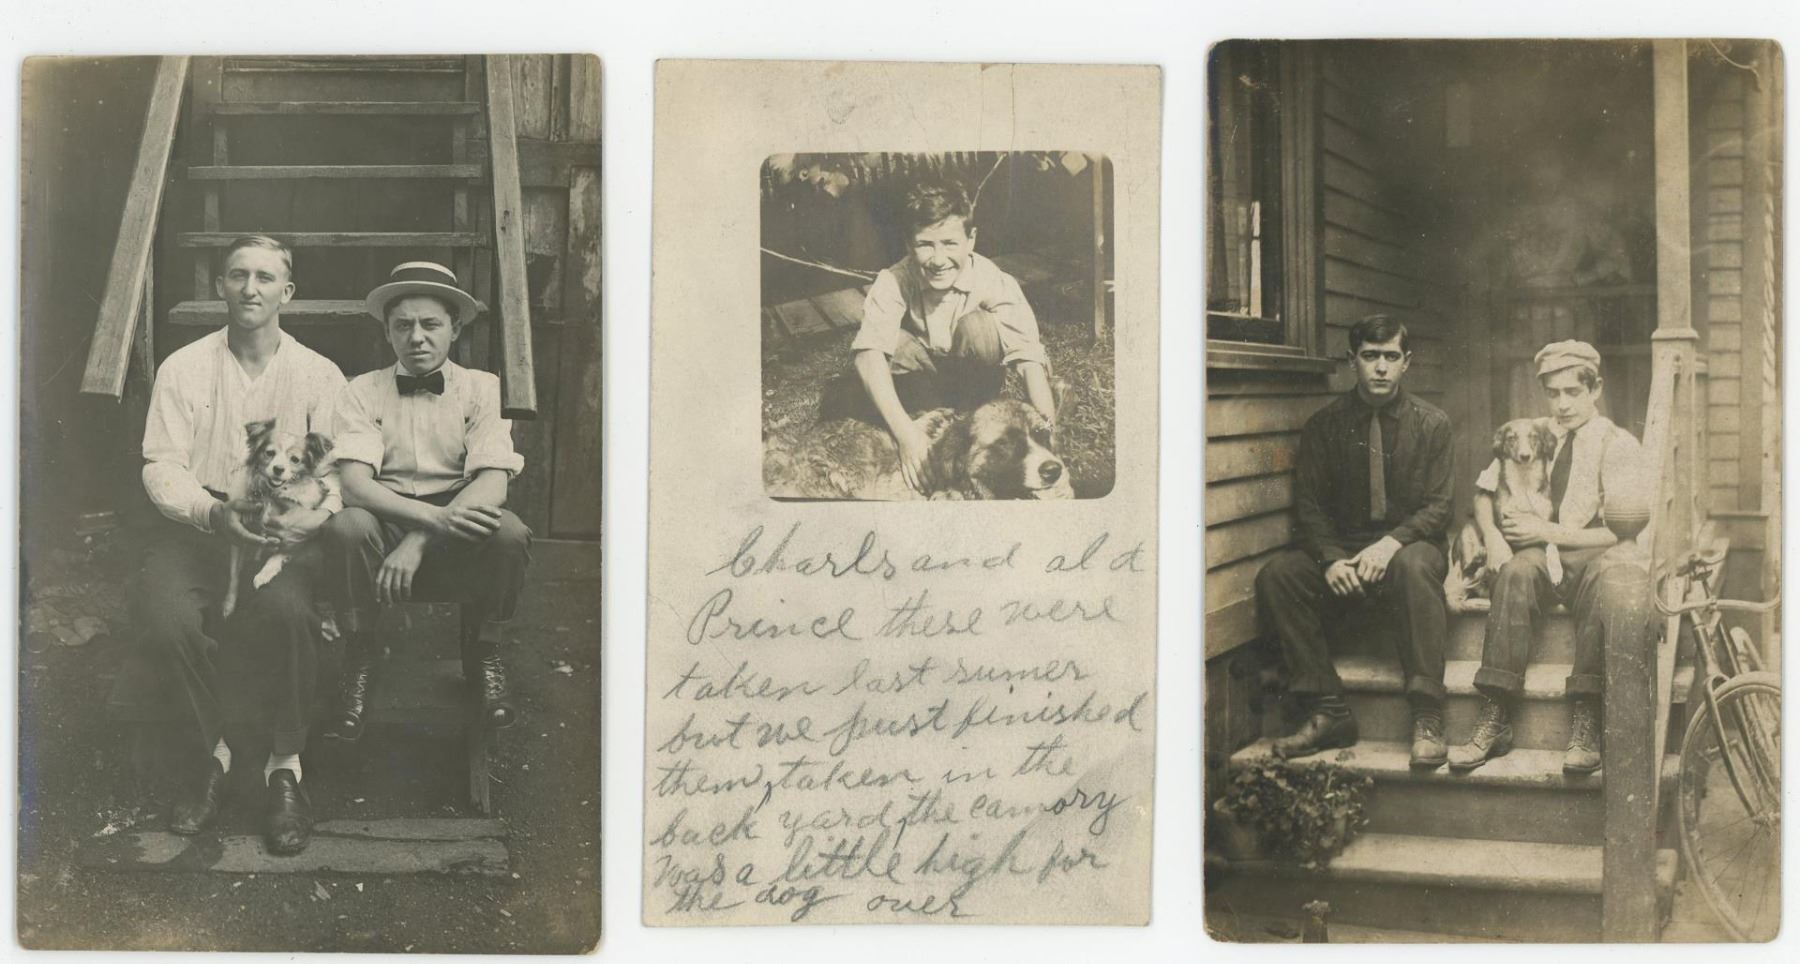 Charls and ald
Prince these were
taken last sumer
but we just finished
them, taken in the
back yard, the camory
was a little high for
the dog over